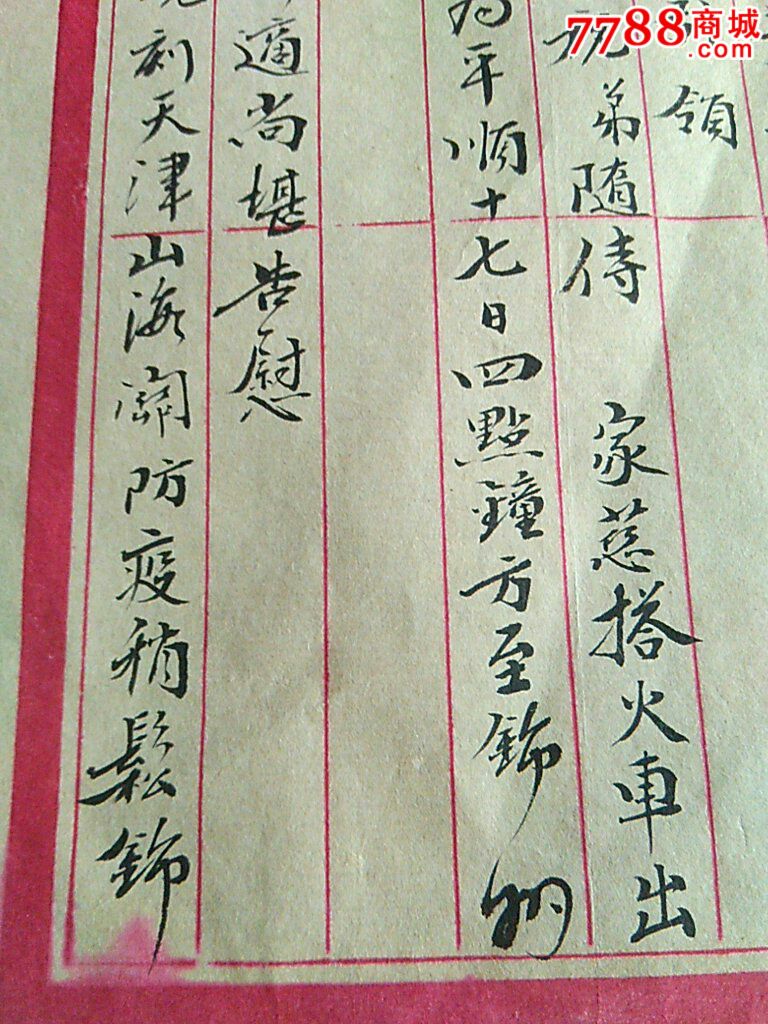 7788商城
.com
領
弟隨侍 家慈搭火車出
平順十七日四點鐘方至錦州
適尚堪告慰
刻天津山海關防疫稍鬆錦